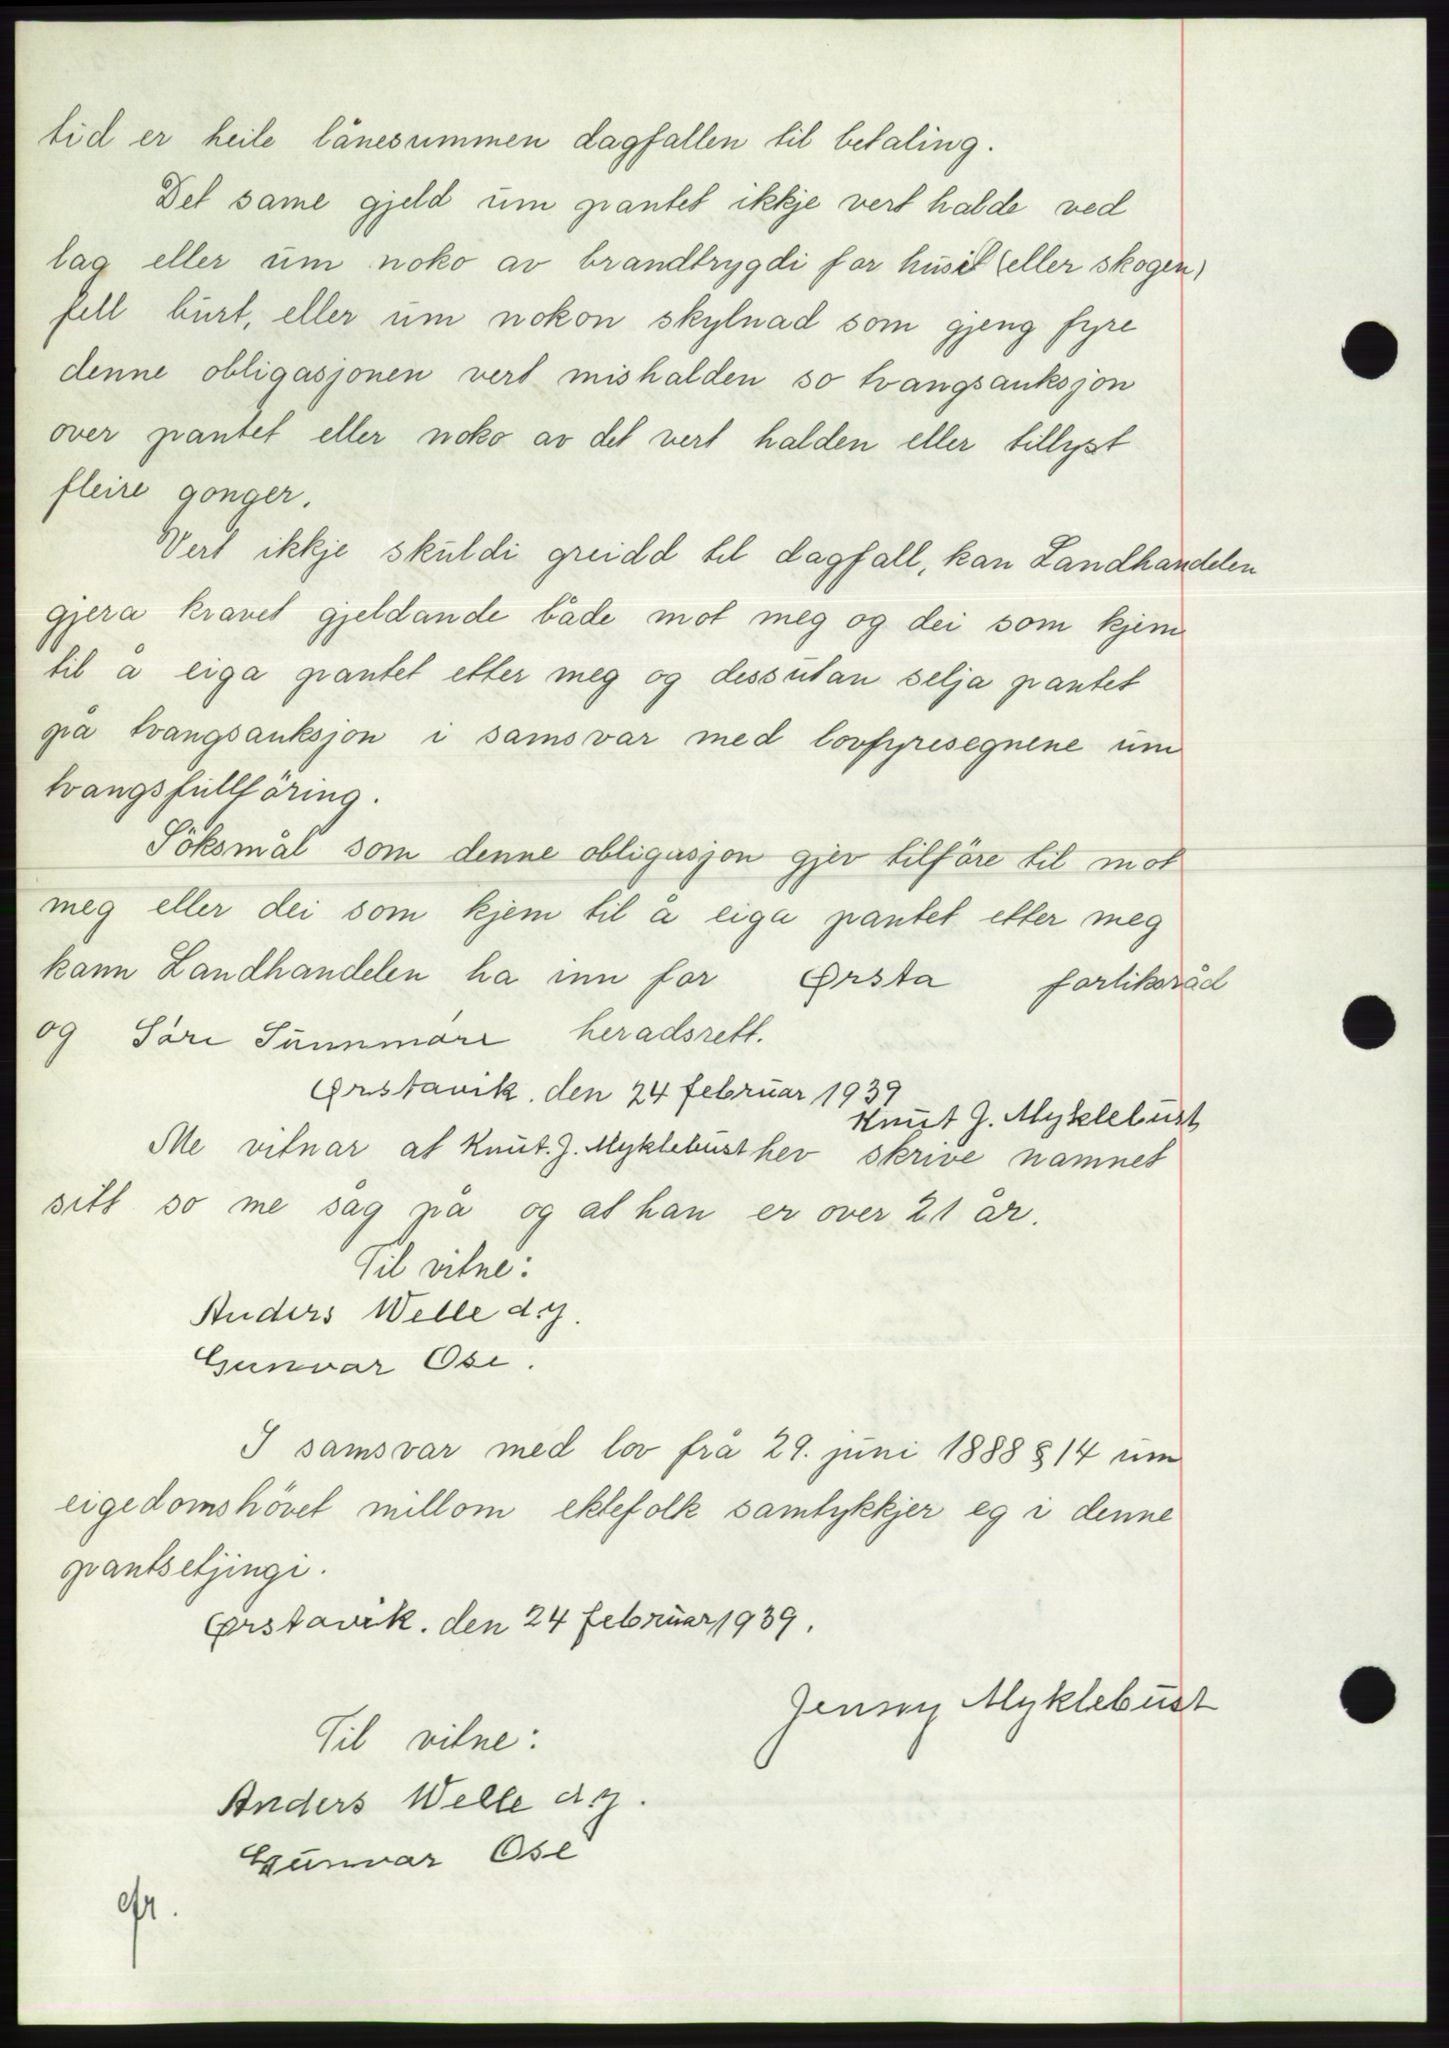 tid er heile lånesummen dagfallen til betaling.
Det same gjeld um pantet ikkje vert halde ved
lag eller um noko av brandtrygdi for huset (eller skogen)
fell burt, eller um nokon skylnad som gjeng fyre
denne obligasjonen vert mishalden so tvangsauksjon
over pantet eller noko av det vert halden eller tillyst
fleire gonger.
Vert ikkje skuldi greidd til dagfall, kan Landhandelen
gjera kravet gjeldande både mot meg og dei som kjem
til å eiga pantet etter meg og dessutan selja pantet
på tvangsauksjon i samsvar med lovfyresegnene um
tvangsfullföring.
Söksmål som denne obligasjon gjev tilföre til mot
meg eller dei som kjem til å eiga pantet etter meg
kann Landhandelen ha inn for Ørsta forliksråd
og Söre Sunnmöre heradsrett.
Ørstavik. den 24 februar 1939
Knut J. Myklebust
Me vitnar at Knut. J. Myklebust hev skrive namnet
sitt so me såg på og at han er over 21 år.
Til vitne:
Anders Welle d.y.
Gunvar Ose.
I samsvar med lov frå 29. juni 1888 § 14 um
eigedomshövet millom ektefolk samtykkjer eg i denne
pantsetjingi.
Ørstavik. den 24 februar 1939.
Jensny Myklebust
Til vitne:
Anders Welle d.y.
Gunvar Ose